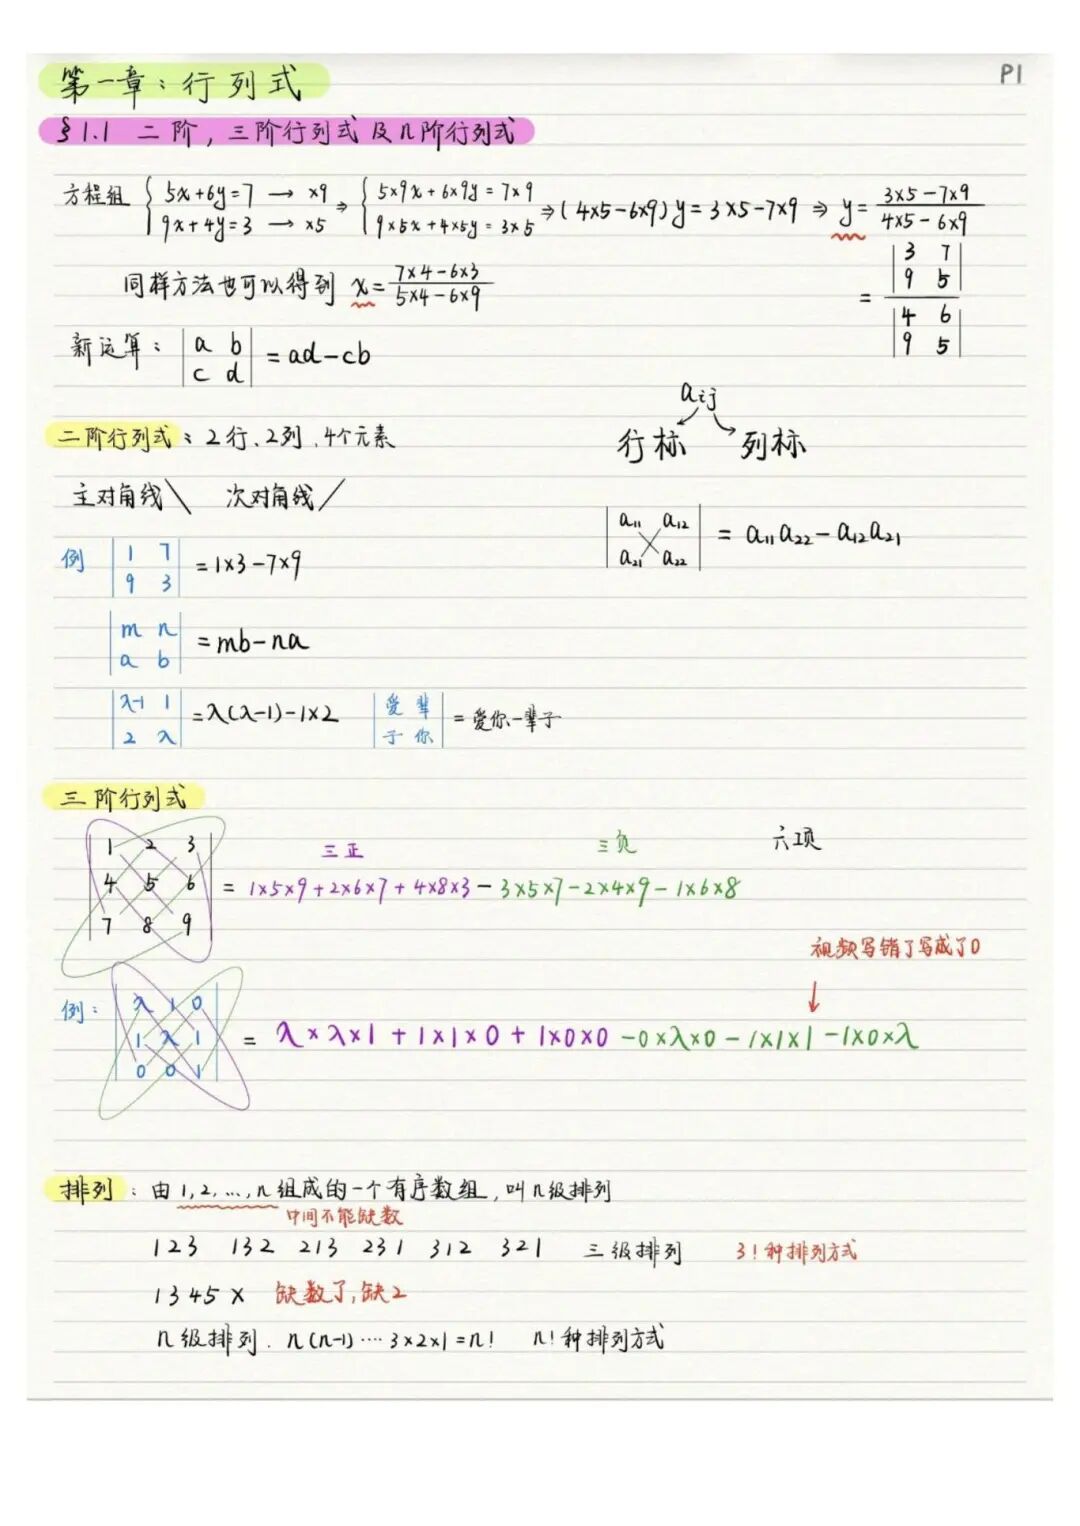 P1
第一章：行列式
§1.1 二阶，三阶行列式及n阶行列式
方程组 { 5x+6y=7 → ×9 ⇒ { 5×9x+6×9y=7×9 ⇒(4×5-6×9)y=3×5-7×9 ⇒ y= (3×5-7×9)/(4×5-6×9)
9x+4y=3 → ×5 9×5x+4×5y=3×5
同样方法也可以得到 x= (7×4-6×3)/(5×4-6×9)
= |3 7|
|9 5|
|4 6|
|9 5|
新运算：|a b| = ad-cb
|c d|
aij
行标 列标
二阶行列式：2行、2列、4个元素
主对角线\ 次对角线/
|a11 a12| = a11a22-a12a21
|a21 a22|
例 |1 7| =1×3-7×9
|9 3|
|m n| =mb-na
|a b|
|λ-1 1| =λ(λ-1)-1×2 |爱 辈| =爱你一辈子
|2 λ| |子 你|
三阶行列式
三正 三负 六项
|1 2 3|
|4 5 6| = 1×5×9+2×6×7+4×8×3-3×5×7-2×4×9-1×6×8
|7 8 9|
视频写错了写成了0
↓
例：|λ 1 0|
|1 λ 1| = λ×λ×1+1×1×0+1×0×0-0×λ×0-1×1×1-1×0×λ
|0 0 1|
排列：由1,2,…,n组成的一个有序数组，叫n级排列
中间不能缺数
123 132 213 231 312 321 三级排列 3!种排列方式
1345 × 缺数了,缺2
n级排列. n(n-1)····3×2×1=n! n!种排列方式